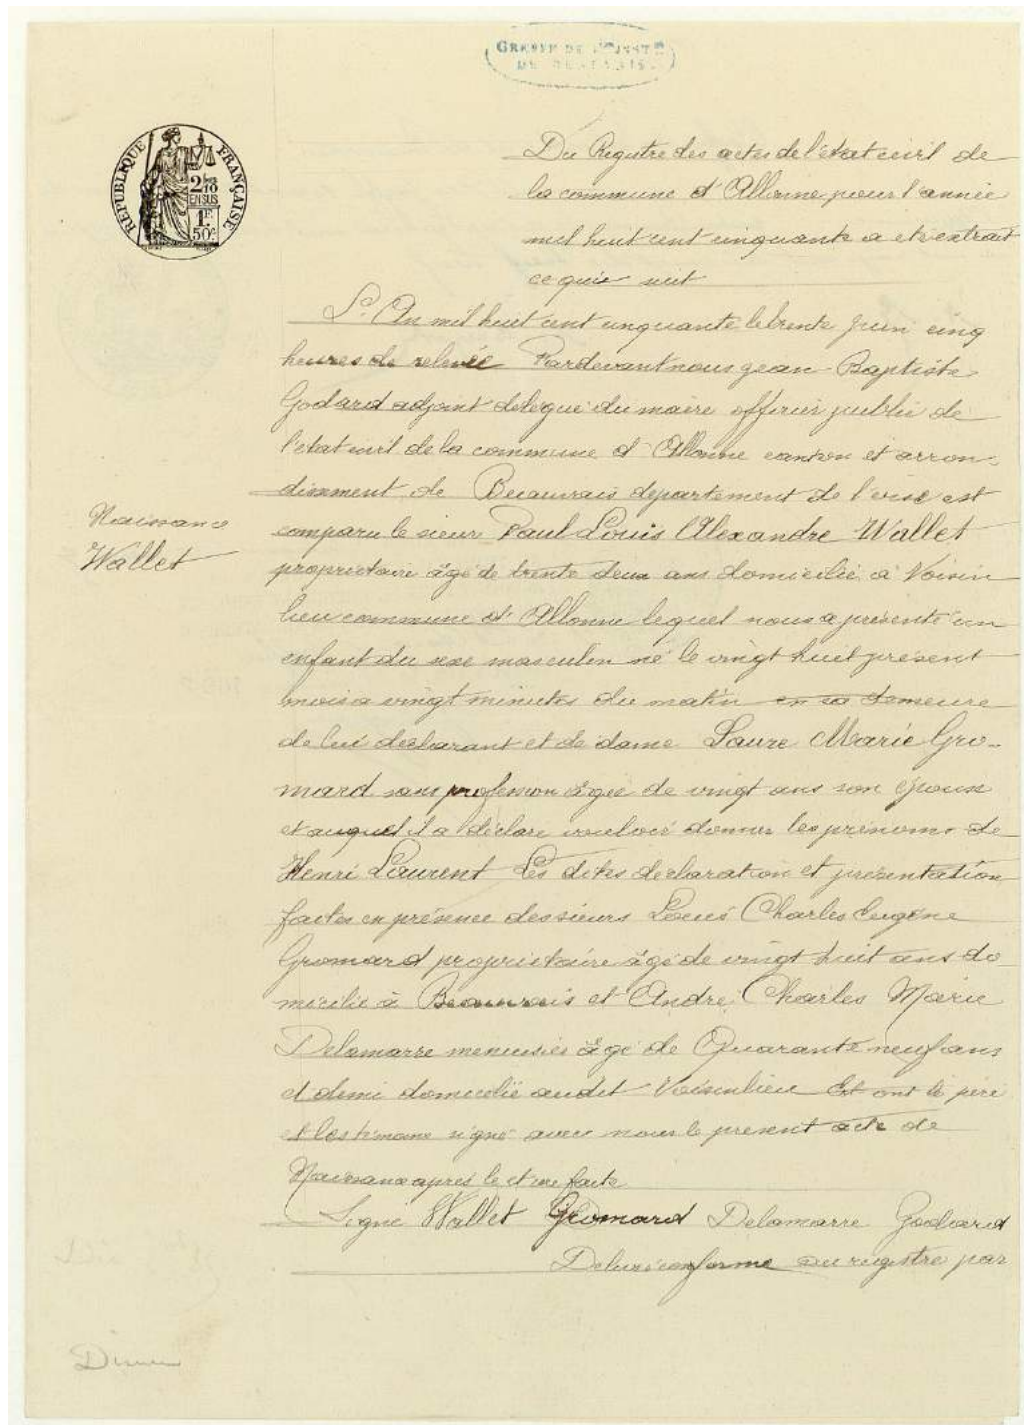 GREFFE DE 1ère INSTce
DE BEAUVAIS
RÉPUBLIQUE FRANÇAISE
2/10
EN SUS
1F.
50c.
Du Registre des actes de l'état civil de
la commune d'Allonne pour l'année
mil huit cent cinquante a ete extrait
ce qui suit
L'An mil huit cent cinquante le trente juin cinq
heures de relevée Pardevant nous jean-Baptiste
Godard adjoint delegué du maire officier public de
l'état civil de la commune d'Allonne canton et arron-
dissement de Beauvais departement de l'oise est
comparu le sieur Paul Louis Alexandre Wallet
Naissance
Wallet
proprietaire âgé de trente deux ans domicilié à Voisin
lieu commune d'Allonne lequel nous a présenté un
enfant du sexe masculin né le vingt huit présent
mois a vingt minutes du matin en sa demeure
de lui declarant et de dame Laure Marie Gro-
mard sans profession âgée de vingt ans son épouse
et auquel il a déclaré vouloir donner les prénoms de
Henri Laurent Les dites declaration et présentation
faites en présence des sieurs Louis Charles Eugène
Gromard proprietaire âgé de vingt huit ans do
micilié à Beauvais et André Charles Marie
Delamarre menuisier âgé de Quarante neuf ans
et demi domicilié audit Voisinlieu Et ont le père
et les témoins signé avec nous le present acte de
Naissance après lecture faite
Signé Wallet Gromard Delamarre Godard
Delivré conforme au registre par